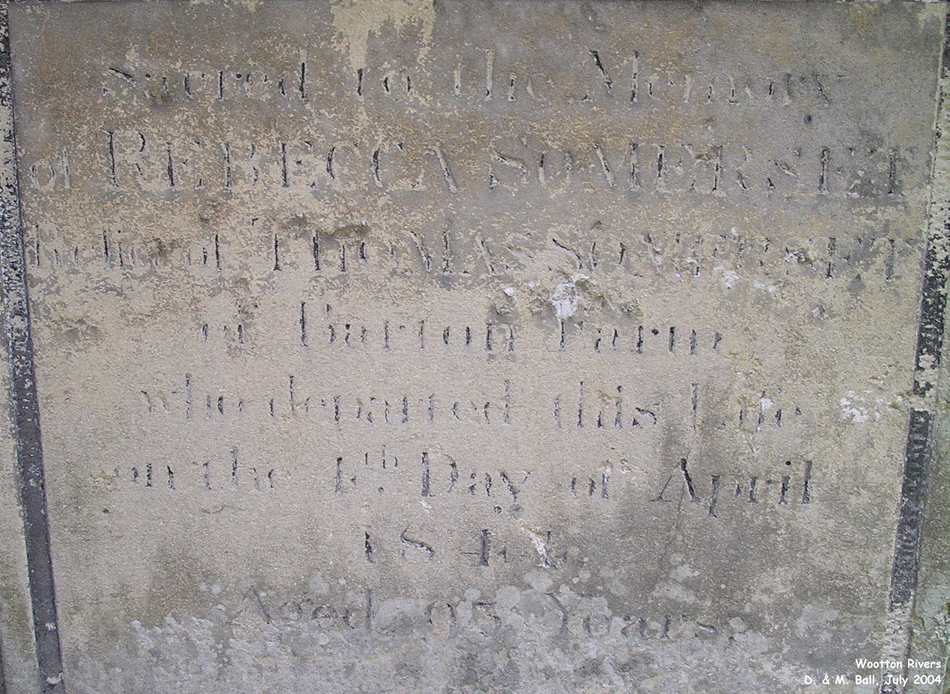 Sacred to the Memory
of REBECCA SOMERSET
of THOMAS SOMERSET
of Barton Farm
who departed this Life
on the Day of April
1844
Aged Years.
Wootton Rivers
D. & M. Ball, July 2004